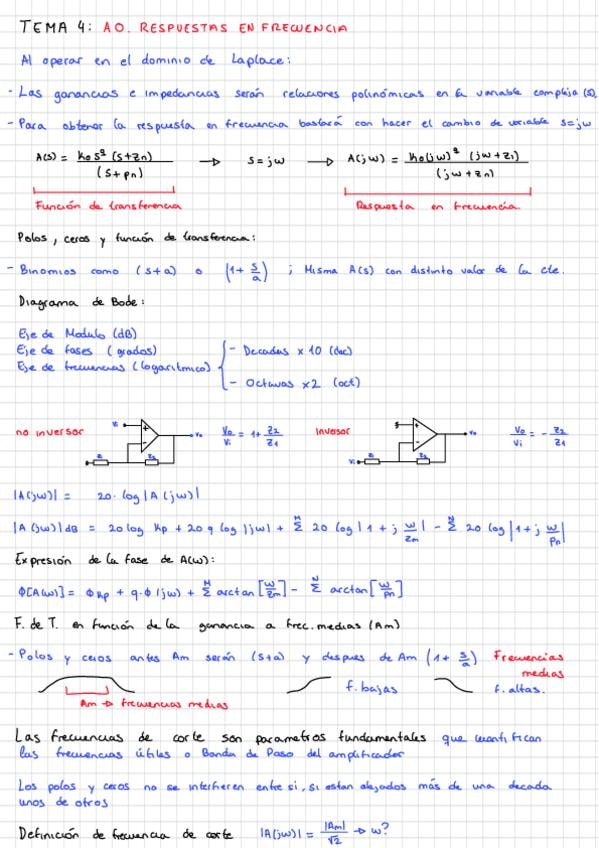 TEMA 4: AO. RESPUESTAS EN FRECUENCIA
Al operar en el dominio de Laplace:
- Las ganancias e impedancias serán relaciones polinómicas en la variable compleja (s).
- Para obtener la respuesta en frecuencia bastará con hacer el cambio de variable s=jw
A(s) = k₀s^q (s+zn) / (s+pn) → s=jw → A(jw) = k₀(jw)^q (jw+z1) / (jw+zn)
Función de transferencia Respuesta en frecuencia.
Polos, ceros y función de transferencia:
- Binomios como (s+a) o (1+ s/a) ; Misma A(s) con distinto valor de la cte.
Diagrama de Bode:
Eje de Modulo (dB)
Eje de fases (grados)
Eje de frecuencias (logarítmico) { - Decadas x10 (dec)
- Octavas x2 (oct)
no inversor Vi Vo Z1 Z2 Vo/Vi = 1+ Z2/Z1 Inversor Vi Vo Z1 Z2 Vo/Vi = - Z2/Z1
|A(jw)| = 20·log |A(jw)|
|A(jw)|dB = 20 log Kp + 20 q log |jw| + Σ^M 20 log |1+j w/zm| - Σ^N 20 log |1+j w/pn|
Expresión de la fase de A(w):
Φ[A(w)] = Φkp + q·Φ(jw) + Σ^M arctan [w/zm] - Σ^N arctan [w/pn]
F. de T. en función de la ganancia a frec. medias (Am)
- Polos y ceros antes Am serán (s+a) y despues de Am (1+ s/a) Frecuencias medias
Am → frecuencias medias f. bajas f. altas.
Las frecuencias de corte son parametros fundamentales que cuantifican
las frecuencias útiles o Banda de Paso del amplificador
Los polos y ceros no se interfieren entre si, si estan alejados más de una decada
unos de otros
Definición de frecuencia de corte |A(jw)| = |Am|/√2 → w?